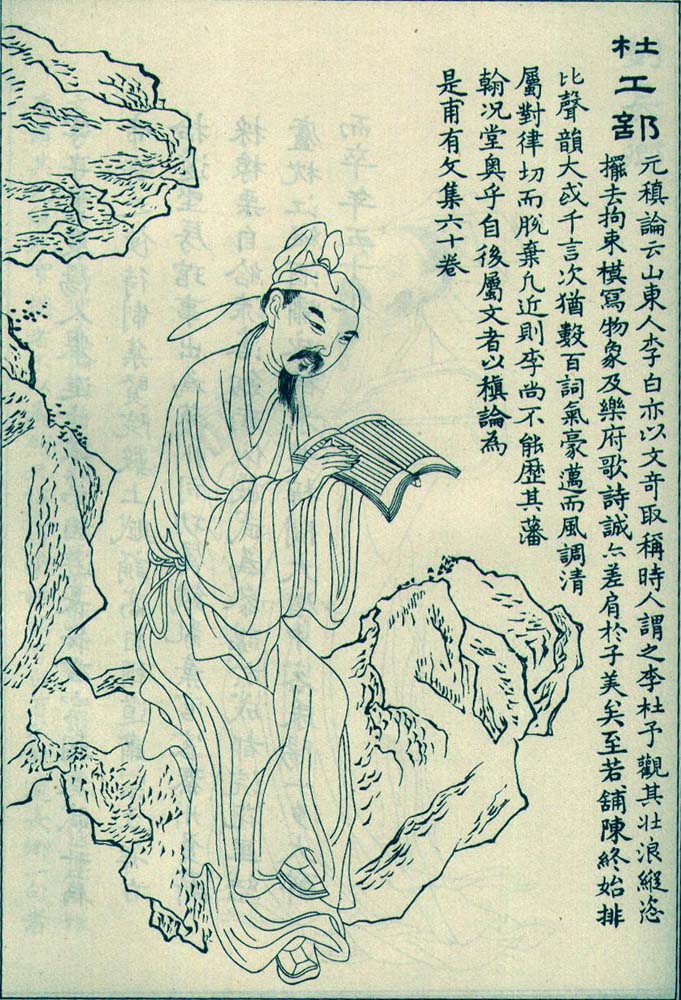 杜工部
元稹論云山東人李白亦以文奇取稱時人謂之李杜予觀其壯浪縱恣
擺去拘束模寫物象及樂府歌詩誠亦差肩於子美矣至若鋪陳終始排
比聲韻大或千言次猶數百詞氣豪邁而風調清
屬對律切而脫棄凡近則李尚不能歷其藩
翰况堂奥乎自後屬文者以稹論為
是甫有文集六十卷